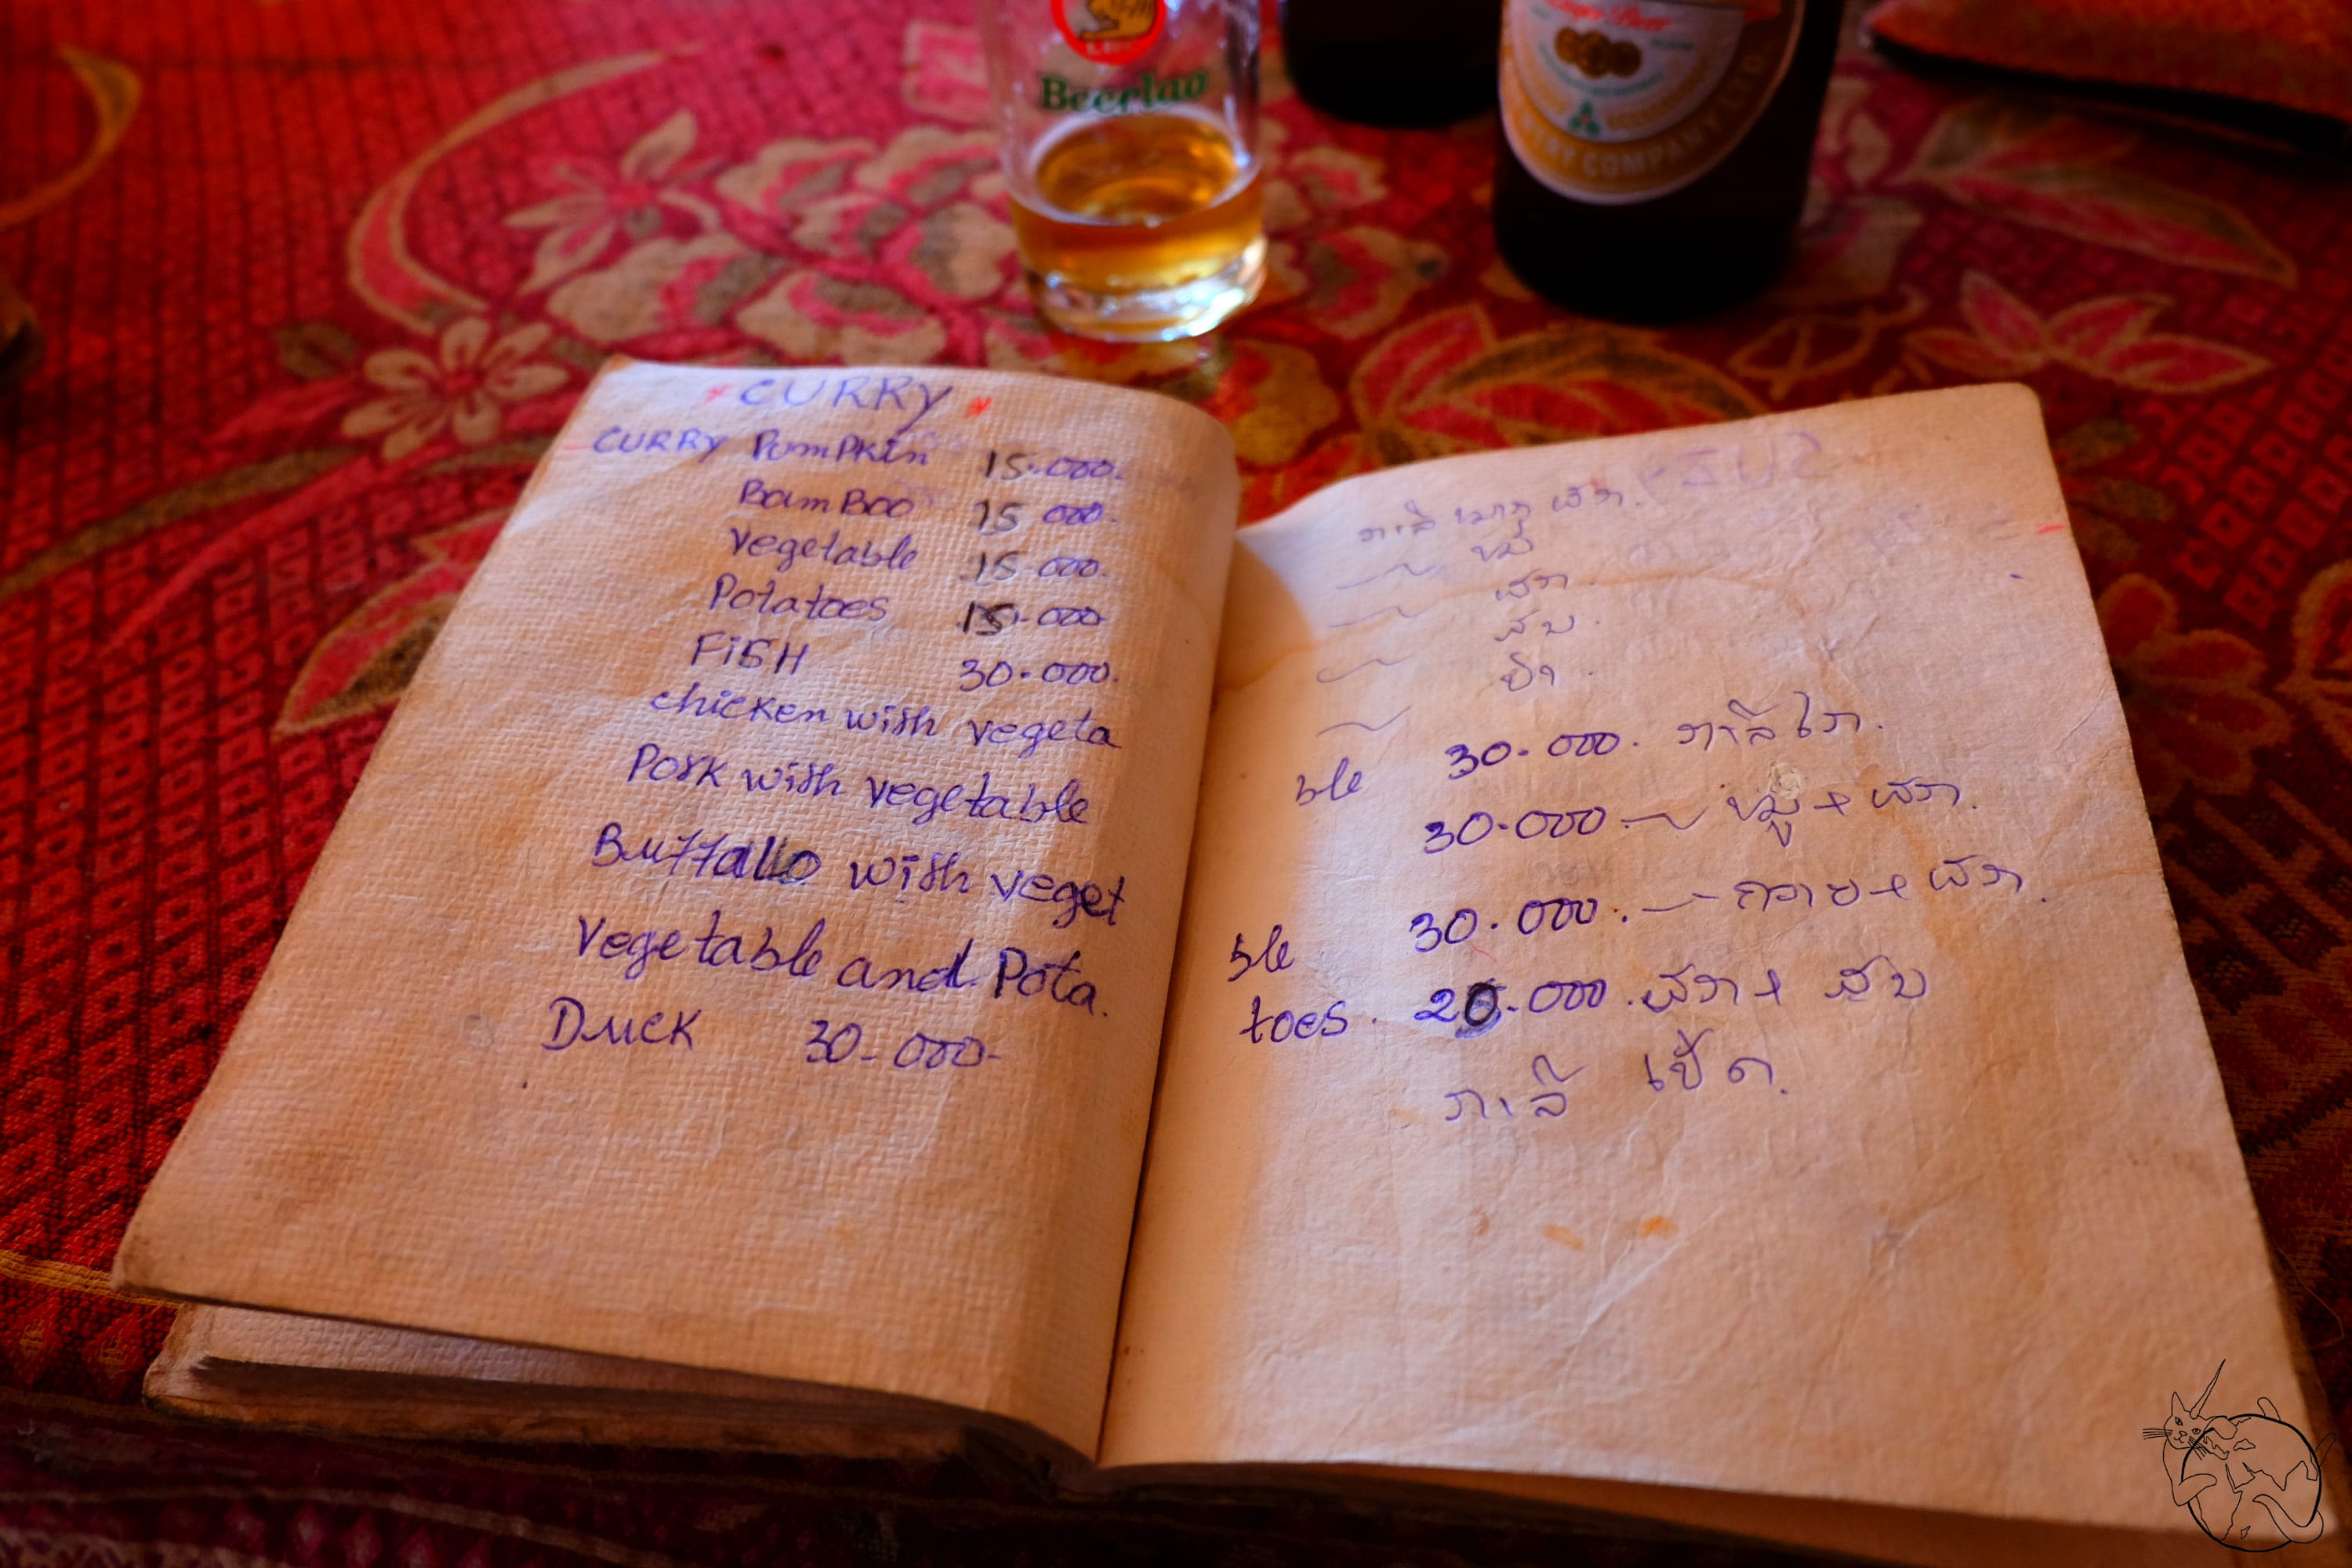 Beerlao
COMPANY LTD.
* CURRY *
CURRY PumPKin 15.000.
BamBoo 15 000.
vegetable 15.000.
Potatoes 15.000
FiSH 30.000.
chicken with vegeta
Pork with vegetable
Buffallo with veget
Vegetable and Pota.
Duck 30-000-
ກາລີ ໝາກ ຜັກ.
ຜັກ.
ປາ.
ble 30.000. ກາລີໄກ່.
30.000 — ໝູ + ຜັກ.
ble 30.000. — ຄວາຍ + ຜັກ.
toes. 20.000. ຜັກ +
ກາລີ ເປັດ.